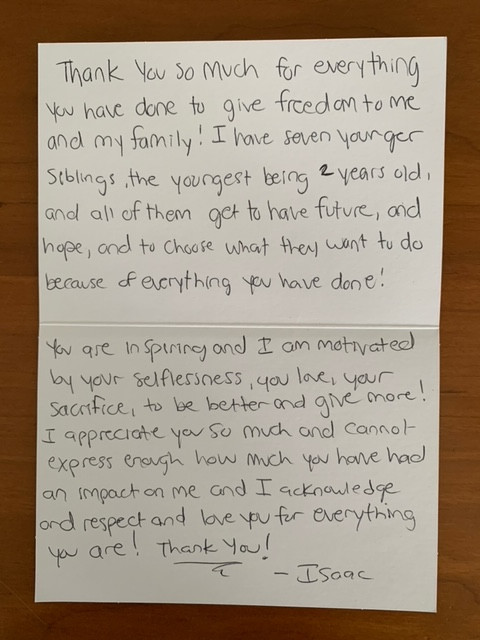 Thank You so much for everything
you have done to give freedom to me
and my family! I have seven younger
siblings, the youngest being 2 years old,
and all of them get to have future, and
hope, and to choose what they want to do
because of everything you have done!
You are inspiring and I am motivated
by your selflessness, you love, your
sacrifice, to be better and give more!
I appreciate you so much and cannot
express enough how much you have had
an impact on me and I acknowledge
and respect and love you for everything
you are! Thank You!
- Isaac